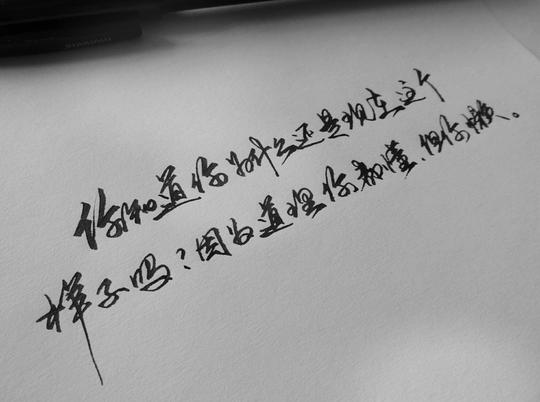 你知道你为什么还是现在这个
样子吗？因为道理你都懂，但你懒。